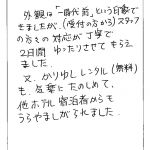 外観は「一時代前」という印象で
きましたが、(受付の方から)スタッフ
の方々の対応が丁寧で
2日間 ゆったりさせてもらえ
ました。
又、かりゆしレンタル(無料)
も、気軽にたのしめて、
他ホテル宿泊者からも
うらやましがられました。